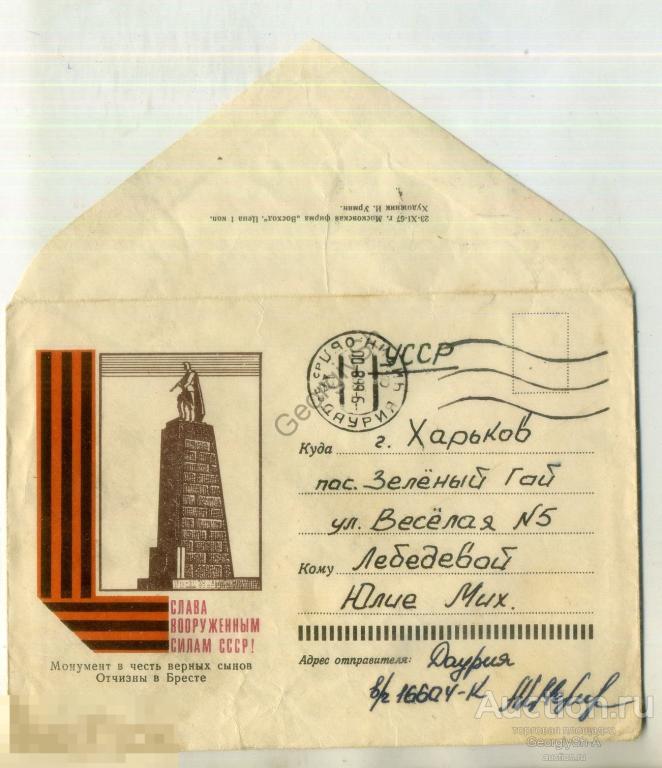 23-XI-67 г. Московская фирма „Восход". Цена 1 коп.
Художник И. Урмин.
УССР
ДАУРИЯ
Куда г. Харьков
пос. Зелёный Гай
ул. Весёлая N5
Кому Лебедевой
Юлие Мих.
СЛАВА
ВООРУЖЕННЫМ
СИЛАМ СССР!
Монумент в честь верных сынов
Отчизны в Бресте
Адрес отправителя: Даурия
в/ч 16604-К
Auction.ru
торговая площадка
GeorgiySh-A
auction.ru